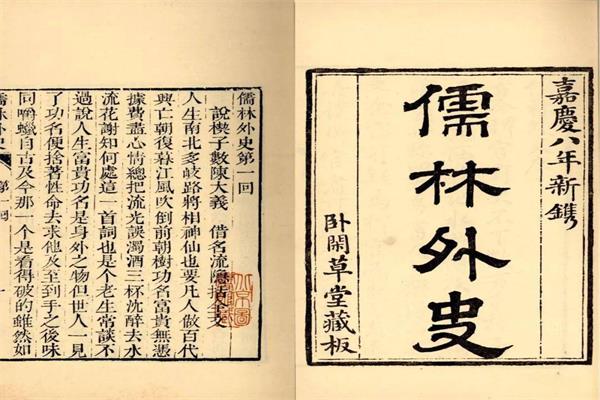 嘉慶八年新鐫
儒林外史
卧閑草堂藏板
儒林外史第一回
說楔子敷陳大義 借名流隱括全文
人生南北多歧路將相神仙也要凡人做百代
興亡朝復暮江風吹倒前朝樹功名富貴無憑
據費盡心情總把流光誤濁酒三杯沈醉去水
流花謝知何處這一首詞也是个老生常談不
過說人生富貴功名是身外之物但世人一見
了功名便捨著性命去求他及至到手之後味
同嚼蠟自古及今那一个是看得破的雖然如
儒林外史 第一回